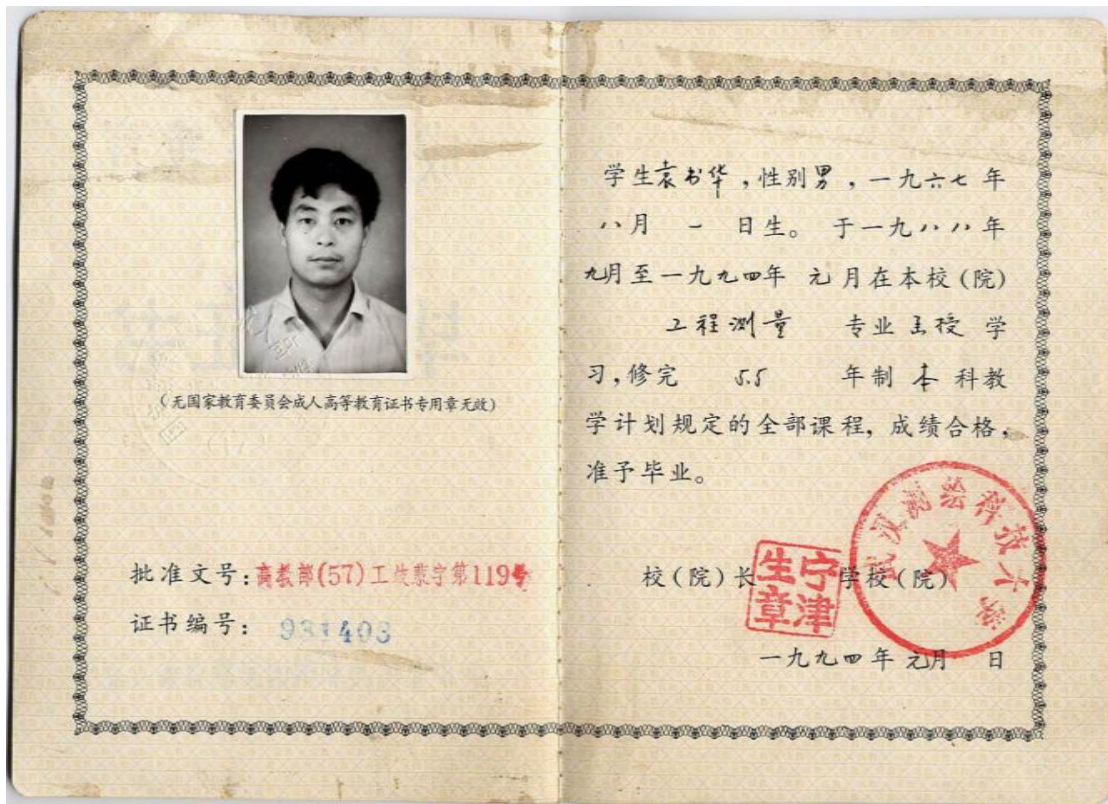 (无国家教育委员会成人高等教育证书专用章无效)
批准文号:高教部(57)工效裴字第119号
证书编号: 931403
学生袁书华,性别男,一九六七年
八月 一 日生。于一九八八年
九月至一九九四年 元月在本校(院)
工程测量 专业函授学
习,修完 5.5 年制 本 科教
学计划规定的全部课程,成绩合格,
准予毕业。
武汉测绘科技大学
校(院)长 宁津生章 学校(院)
一九九四年 元月 日